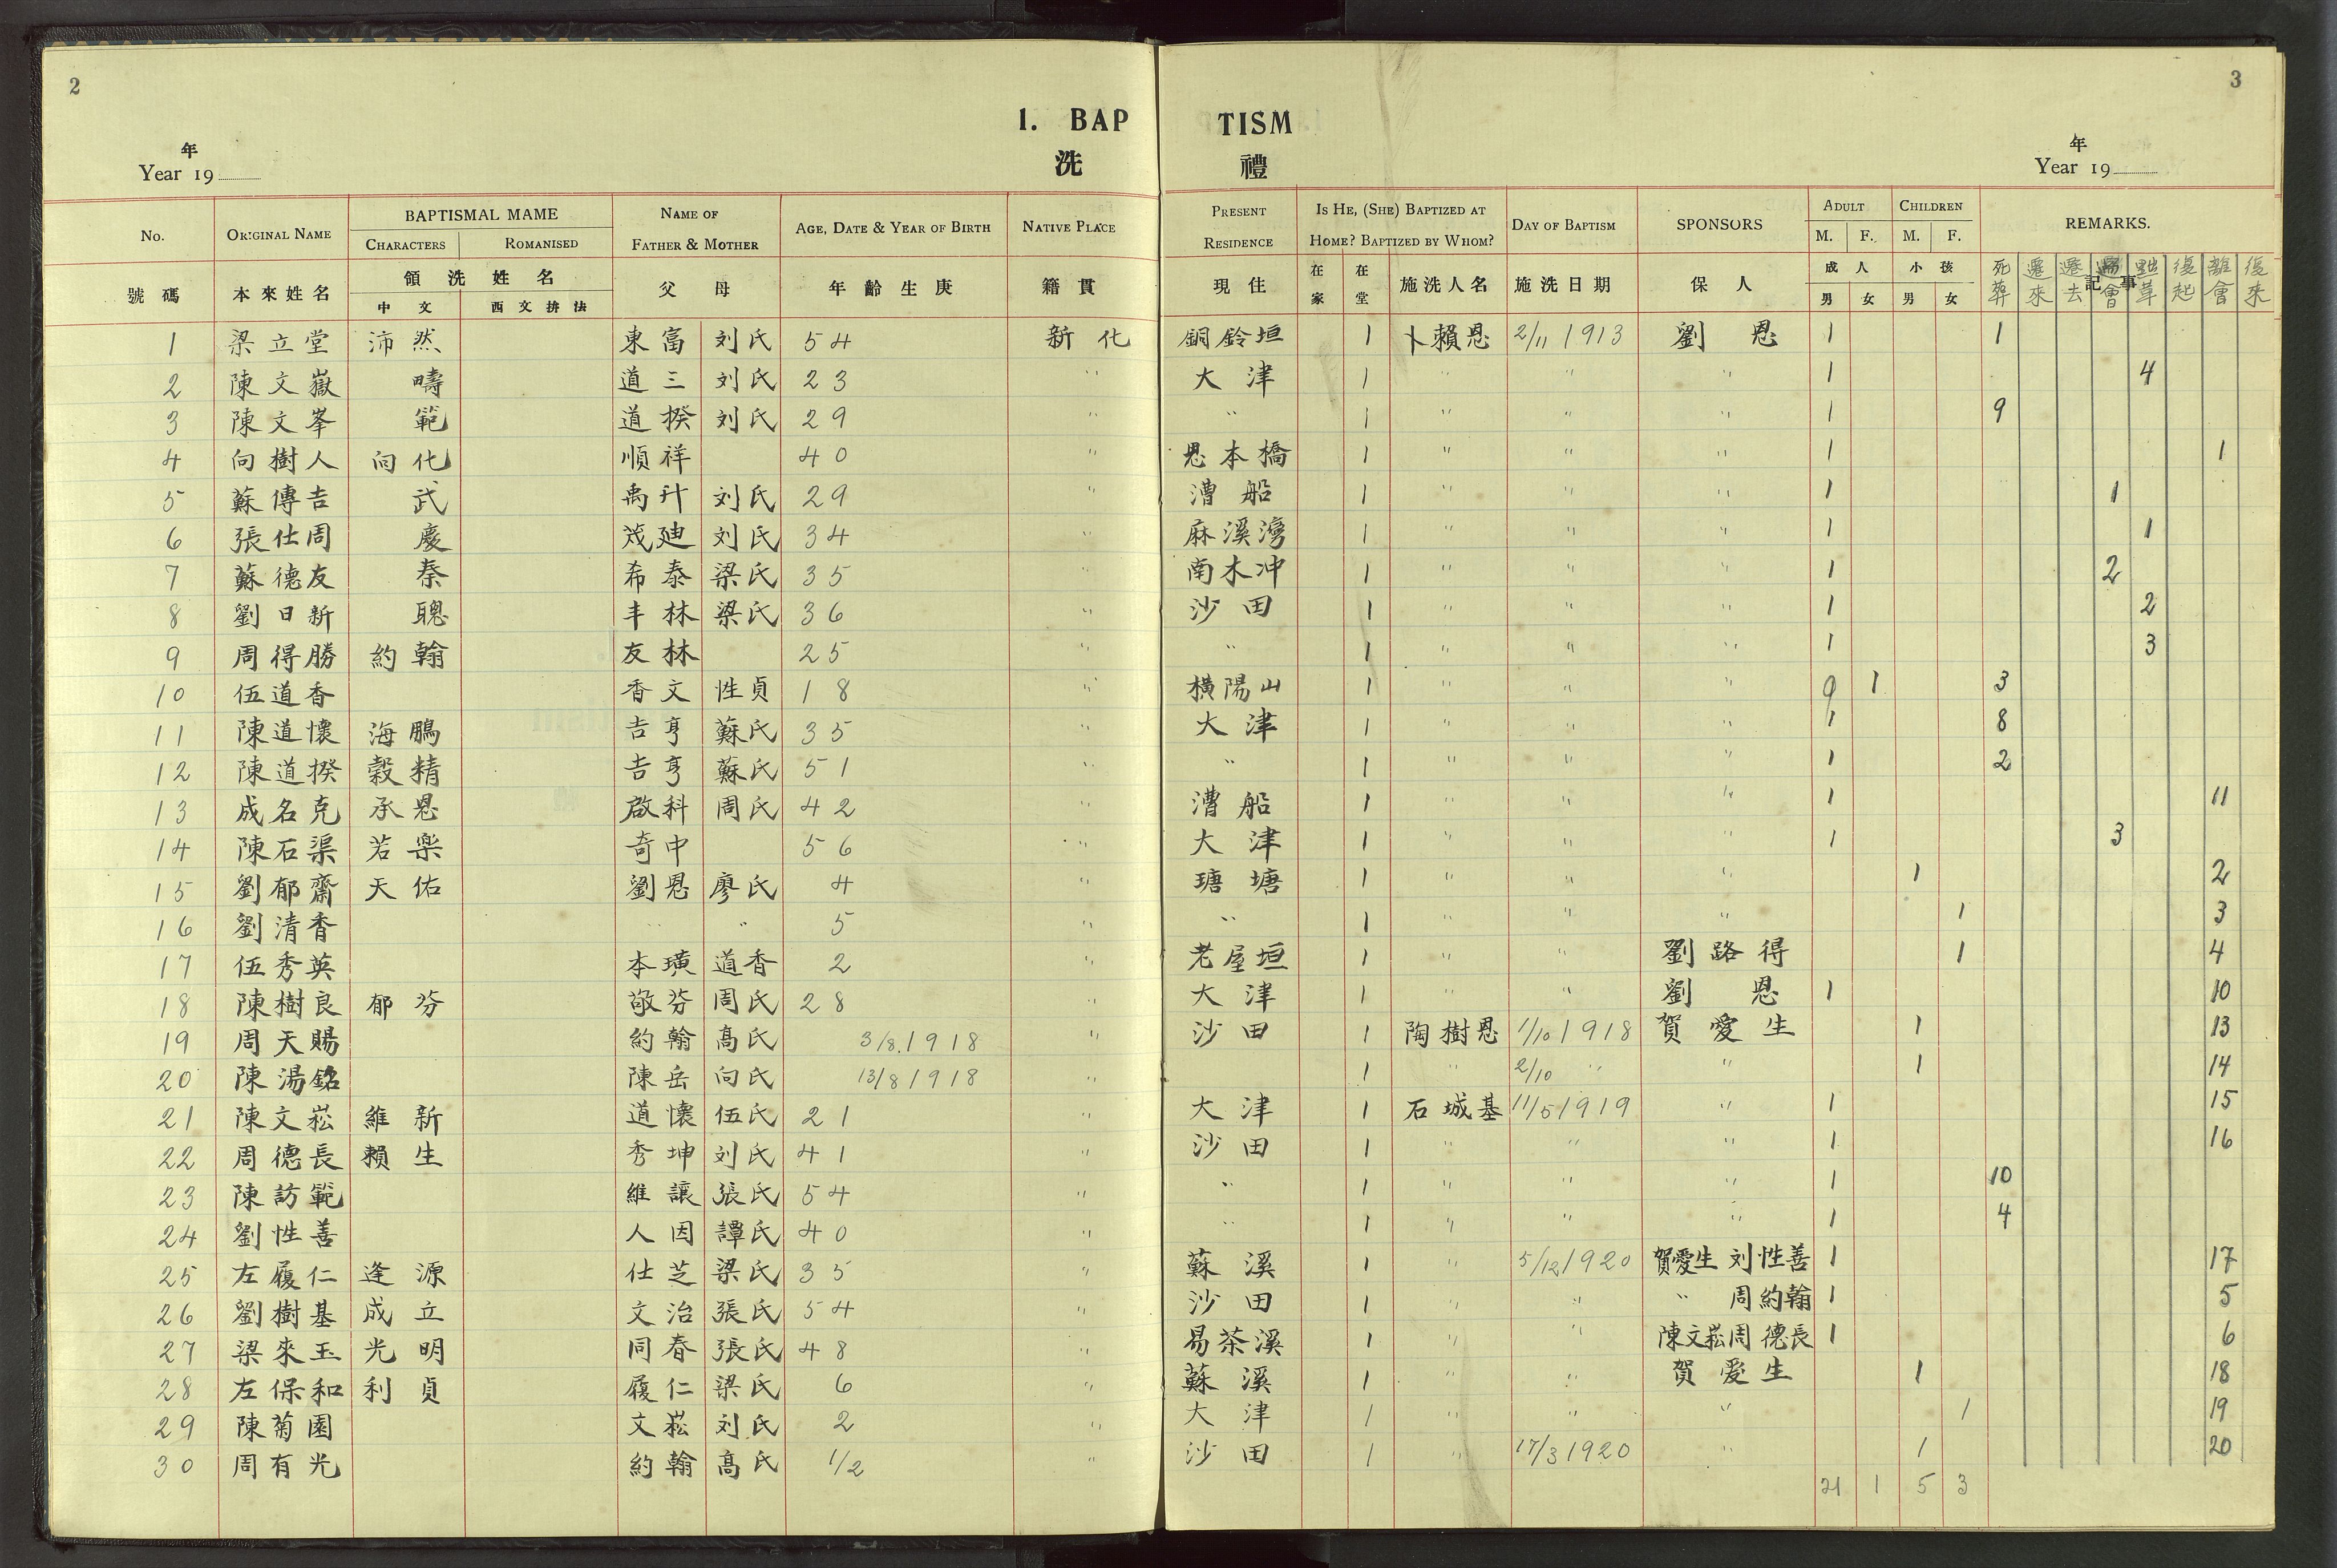 2
3
1. BAP TISM
洗 禮
年 年
Year 19 Year 19
No. ORIGINAL NAME BAPTISMAL MAME NAME OF FATHER & MOTHER AGE, DATE & YEAR OF BIRTH NATIVE PLACE PRESENT RESIDENCE IS HE, (SHE) BAPTIZED AT HOME? BAPTIZED BY WHOM? DAY OF BAPTISM SPONSORS ADULT CHILDREN REMARKS.
CHARACTERS ROMANISED M. F. M. F.
號碼 本來姓名 領洗姓名 父母 年齡生庚 籍貫 現住 在家 在堂 施洗人名 施洗日期 保人 成人 小孩 記事
中文 西文拼法 男 女 男 女 死葬 遷來 遷去 會 草 復起 離會 復來
1 梁立堂 沛然 東富 刘氏 54 新化 銅鈴垣 1 卜賴恩 2/11 1913 劉恩 1 1
2 陳文嶽 疇 道三 刘氏 23 " 大津 1 " " " 1 4
3 陳文峯 範 道揆 刘氏 29 " " 1 " " " 1 9
4 向樹人 向化 順祥 40 " 思本橋 1 " " " 1 1
5 蘇傳吉 武 禹升 刘氏 29 " 漕船 1 " " " 1 1
6 張仕周 慶 茂廸 刘氏 34 " 麻溪灣 1 " " " 1 1
7 蘇德友 泰 希泰 梁氏 35 " 南木冲 1 " " " 1 2
8 劉日新 聰 丰林 梁氏 36 " 沙田 1 " " " 1 2
9 周得勝 約翰 友林 25 " " 1 " " " 1 3
10 伍道香 香文 性貞 18 " 橫陽山 1 " " " 1 3
11 陳道懷 海鵬 吉亨 蘇氏 35 " 大津 1 " " " 1 8
12 陳道揆 穀精 吉亨 蘇氏 51 " " 1 " " " 1 2
13 成名克 承恩 啟科 周氏 42 " 漕船 1 " " " 1 11
14 陳石渠 若樂 奇中 56 " 大津 1 " " " 1 3
15 劉郁齋 天佑 劉恩 廖氏 4 " 瑭塘 1 " " " 1 2
16 劉清香 " " 5 " " 1 " " " 1 3
17 伍秀英 本璜 道香 2 " 老屋垣 1 " " 劉路得 1 4
18 陳樹良 郁芬 敬芬 周氏 28 " 大津 1 " " 劉恩 1 10
19 周天賜 約翰 高氏 3/8 1918 " 沙田 1 陶樹恩 1/10 1918 賀愛生 1 13
20 陳湯銘 陳岳 向氏 13/8 1918 " 1 " 2/10 " " 1 14
21 陳文崧 維新 道懷 伍氏 21 " 大津 1 石城基 11/5 1919 " 1 15
22 周德長 賴生 秀坤 刘氏 41 " 沙田 1 " " " 1 16
23 陳訪範 維讓 張氏 54 " " 1 " " " 1 10
24 劉性善 人因 譚氏 40 " " 1 " " " 1 4
25 左履仁 逢源 仕芝 梁氏 35 " 蘇溪 1 " 5/12 1920 賀愛生 刘性善 1 17
26 劉樹基 成立 文治 張氏 54 " 沙田 1 " " " 周約翰 1 5
27 梁來玉 光明 同春 張氏 48 " 易茶溪 1 " " 陳文崧 周德長 1 6
28 左保和 利貞 履仁 梁氏 6 " 蘇溪 1 " " 賀愛生 1 18
29 陳菊園 文崧 刘氏 2 " 大津 1 " " " 1 19
30 周有光 約翰 高氏 1/2 " 沙田 1 " 17/3 1920 " 1 20
21 1 5 3